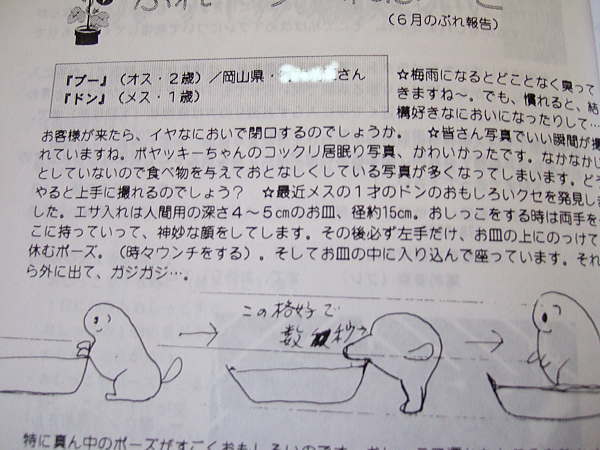 （６月のぷれ報告）
『プー』（オス・２歳）／岡山県・さん
『ドン』（メス・１歳）
☆梅雨になるとどことなく臭って
きますね～。でも、慣れると、結
構好きなにおいになったりして…
お客様が来たら、イヤなにおいで閉口するのでしょうか。　☆皆さん写真でいい瞬間が撮
れていますね。ボヤッキーちゃんのコックリ居眠り写真、かわいかったです。なかなかじ
としていないので食べ物を与えておとなしくしている写真が多くなってしまいます。どう
やると上手に撮れるのでしょう？　☆最近メスの１才のドンのおもしろいクセを発見しま
した。エサ入れは人間用の深さ４～５㎝のお皿、径約15㎝。おしっこをする時は両手を
こに持っていって、神妙な顔をしてします。その後必ず左手だけ、お皿の上にのっけて
休むポーズ。（時々ウンチをする）。そしてお皿の中に入り込んで座っています。それ
ら外に出て、ガジガジ…。
この格好で
数秒
特に真ん中のポーズがすごくおもしろいのです。